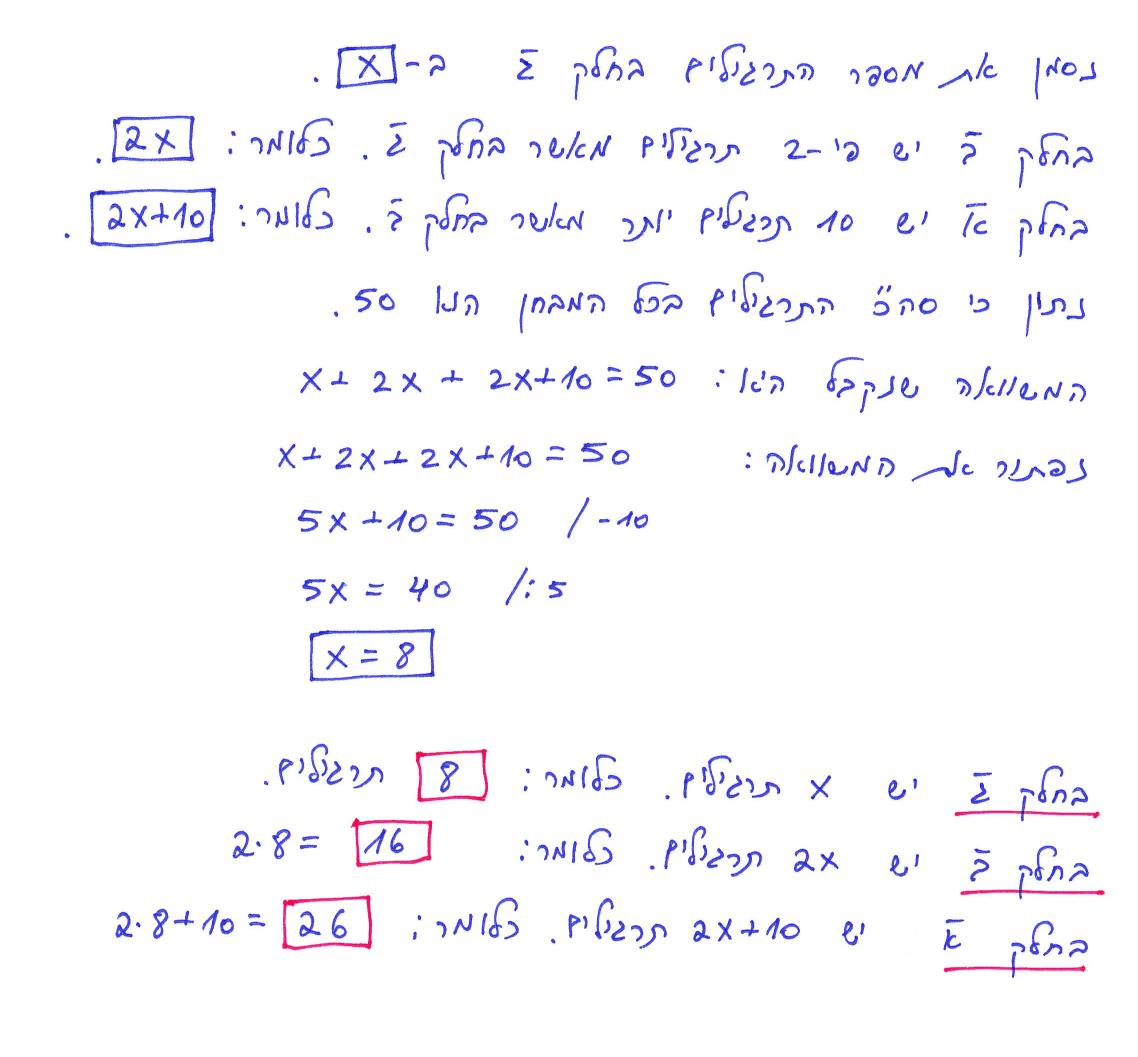 נסמן את מספר התרגילים בחלק ג ב- x .
בחלק ב יש פי-2 תרגילים מאשר בחלק ג. כלומר: 2x .
בחלק א יש 10 תרגילים יותר מאשר בחלק ב. כלומר: 2x+10 .
נתון כי סה"כ התרגילים בכל המבחן הוא 50.
המשוואה שנקבל היא: x+ 2x + 2x+10 = 50
נפתור את המשוואה: x+ 2x+ 2x +10 = 50
5x +10 = 50 / -10
5x = 40 /: 5
x = 8
בחלק ג יש x תרגילים. כלומר: 8 תרגילים.
בחלק ב יש 2x תרגילים. כלומר: 2·8 = 16
בחלק א יש 2x+10 תרגילים. כלומר: 2·8+10 = 26